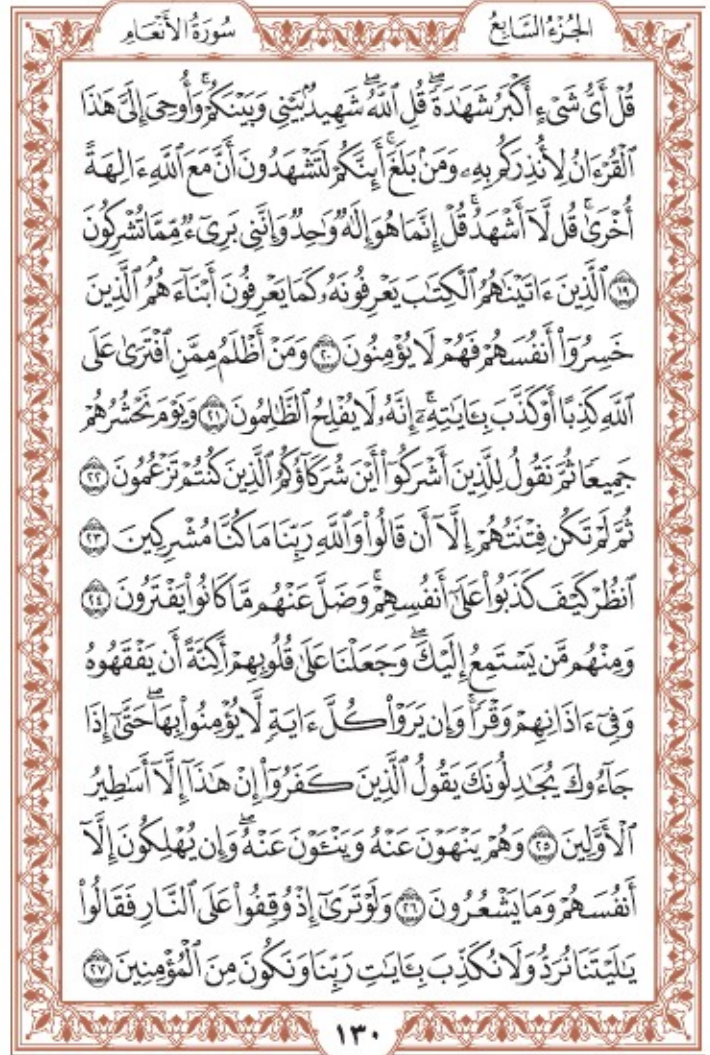 الجُزْءُ السَّابِعُ سُورَةُ الأَنْعَامِ
قُلْ أَيُّ شَيْءٍ أَكْبَرُ شَهَٰدَةٗۖ قُلِ ٱللَّهُۖ شَهِيدُۢ بَيْنِي وَبَيْنَكُمْۚ وَأُوحِيَ إِلَيَّ هَٰذَا
ٱلْقُرْءَانُ لِأُنذِرَكُم بِهِۦ وَمَنۢ بَلَغَۚ أَئِنَّكُمْ لَتَشْهَدُونَ أَنَّ مَعَ ٱللَّهِ ءَالِهَةً
أُخْرَىٰۚ قُل لَّآ أَشْهَدُۚ قُلْ إِنَّمَا هُوَ إِلَٰهٞ وَٰحِدٞ وَإِنَّنِي بَرِيٓءٞ مِّمَّا تُشْرِكُونَ
١٩ ٱلَّذِينَ ءَاتَيْنَٰهُمُ ٱلْكِتَٰبَ يَعْرِفُونَهُۥ كَمَا يَعْرِفُونَ أَبْنَآءَهُمُۘ ٱلَّذِينَ
خَسِرُوٓاْ أَنفُسَهُمْ فَهُمْ لَا يُؤْمِنُونَ ٢٠ وَمَنْ أَظْلَمُ مِمَّنِ ٱفْتَرَىٰ عَلَى
ٱللَّهِ كَذِبًا أَوْ كَذَّبَ بِـَٔايَٰتِهِۦٓۚ إِنَّهُۥ لَا يُفْلِحُ ٱلظَّٰلِمُونَ ٢١ وَيَوْمَ نَحْشُرُهُمْ
جَمِيعٗا ثُمَّ نَقُولُ لِلَّذِينَ أَشْرَكُوٓاْ أَيْنَ شُرَكَآؤُكُمُ ٱلَّذِينَ كُنتُمْ تَزْعُمُونَ ٢٢
ثُمَّ لَمْ تَكُن فِتْنَتُهُمْ إِلَّآ أَن قَالُواْ وَٱللَّهِ رَبِّنَا مَا كُنَّا مُشْرِكِينَ ٢٣
ٱنظُرْ كَيْفَ كَذَبُواْ عَلَىٰٓ أَنفُسِهِمْۚ وَضَلَّ عَنْهُم مَّا كَانُواْ يَفْتَرُونَ ٢٤
وَمِنْهُم مَّن يَسْتَمِعُ إِلَيْكَۖ وَجَعَلْنَا عَلَىٰ قُلُوبِهِمْ أَكِنَّةً أَن يَفْقَهُوهُ
وَفِيٓ ءَاذَانِهِمْ وَقْرٗاۚ وَإِن يَرَوْاْ كُلَّ ءَايَةٖ لَّا يُؤْمِنُواْ بِهَاۖ حَتَّىٰٓ إِذَا
جَآءُوكَ يُجَٰدِلُونَكَ يَقُولُ ٱلَّذِينَ كَفَرُوٓاْ إِنْ هَٰذَآ إِلَّآ أَسَٰطِيرُ
ٱلْأَوَّلِينَ ٢٥ وَهُمْ يَنْهَوْنَ عَنْهُ وَيَنْـَٔوْنَ عَنْهُۖ وَإِن يُهْلِكُونَ إِلَّآ
أَنفُسَهُمْ وَمَا يَشْعُرُونَ ٢٦ وَلَوْ تَرَىٰٓ إِذْ وُقِفُواْ عَلَى ٱلنَّارِ فَقَالُواْ
يَٰلَيْتَنَا نُرَدُّ وَلَا نُكَذِّبَ بِـَٔايَٰتِ رَبِّنَا وَنَكُونَ مِنَ ٱلْمُؤْمِنِينَ ٢٧
١٣٠